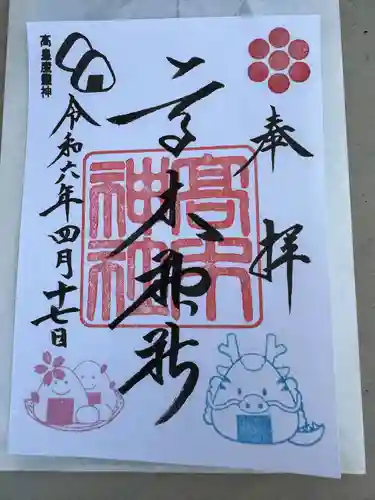 奉拝
高木神社
高木神社
令和六年四月十七日
高皇産靈神